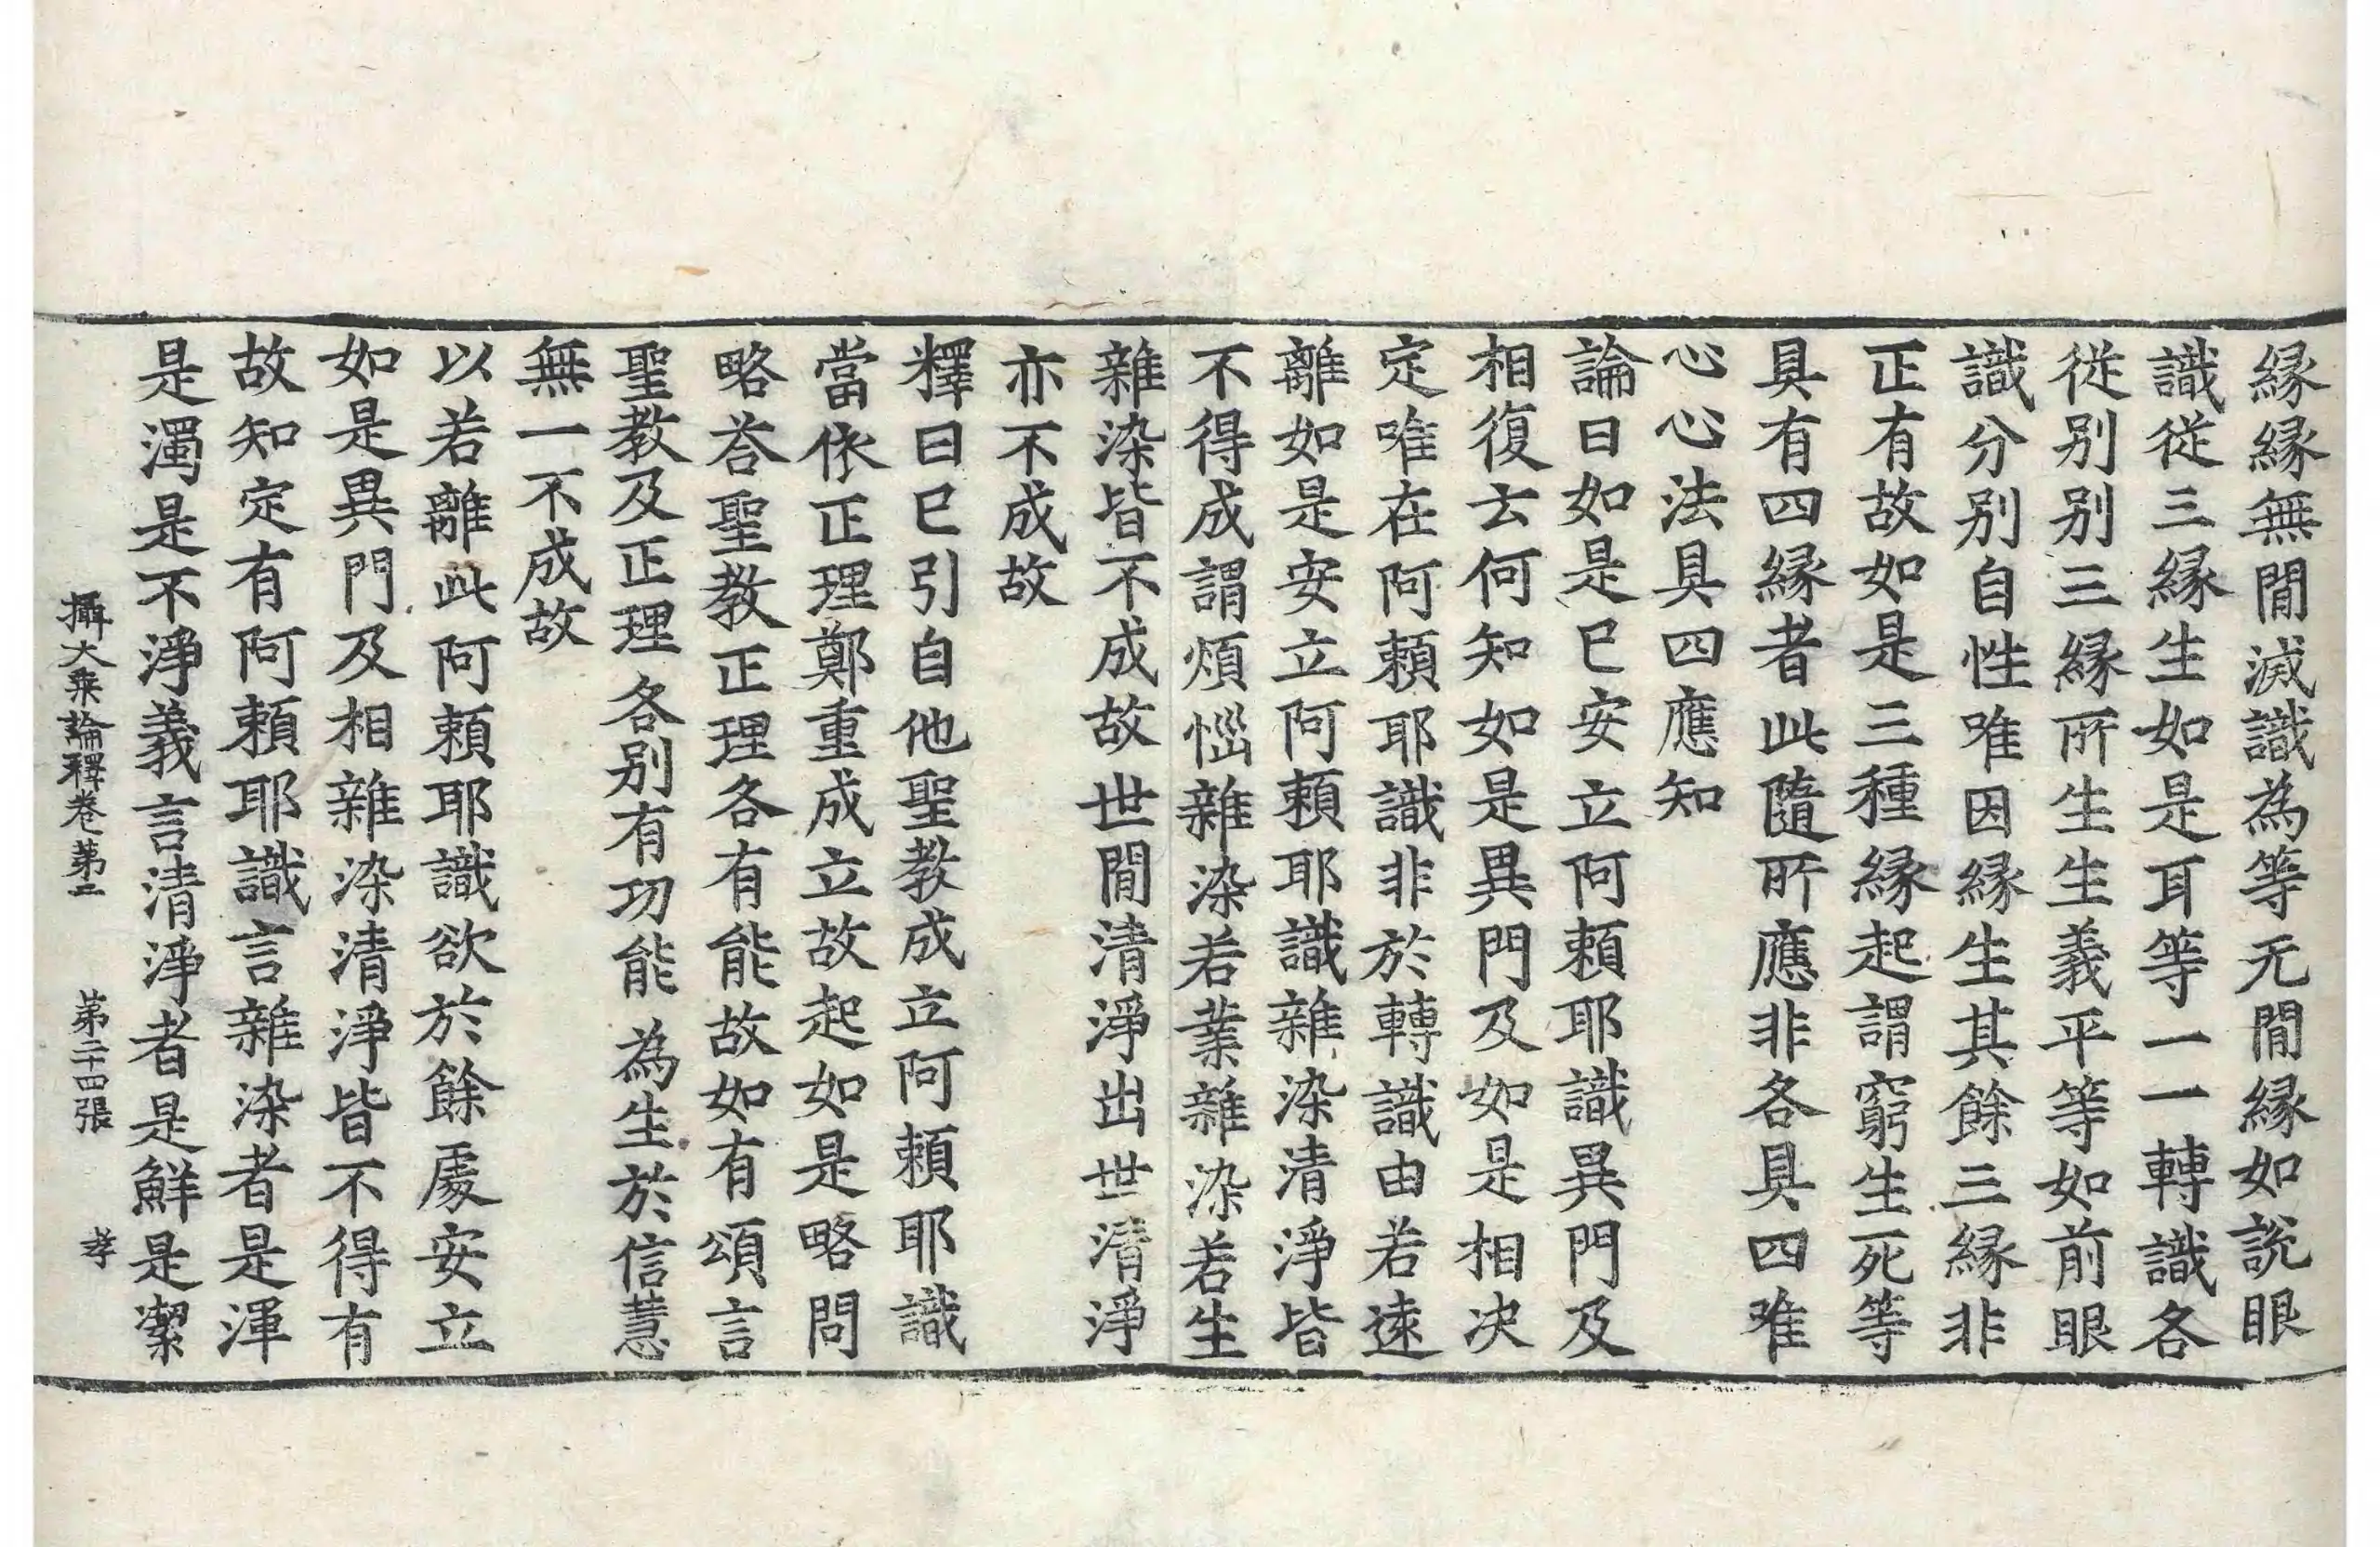 縁縁無間滅識為等无間縁如說眼
識従三縁生如是耳等一一轉識各
従别别三縁所生生義平等如前眼
識分别自性唯因縁生其餘三縁非
正有故如是三種縁起謂窮生死等
具有四縁者此隨所應非各具四唯
心心法具四應知
論曰如是已安立阿頼耶識異門及
相復云何知如是異門及如是相决
定唯在阿頼耶識非於轉識由若逺
離如是安立阿頼耶識雜染清淨皆
不得成謂煩惱雜染若業雜染若生
雜染皆不成故世間清淨出世清淨
亦不成故
釋曰已引自他聖教成立阿頼耶識
當依正理鄭重成立故起如是略問
略荅聖教正理各有能故如有頌言
聖教及正理 各别有功能 為生於信慧
無一不成故
以若離此阿頼耶識欲於餘處安立
如是異門及相雜染清淨皆不得有
故知定有阿頼耶識言雜染者是渾
是濁是不淨義言清淨者是鮮是潔
攝大乗論釋卷第二 第二十四張 孝